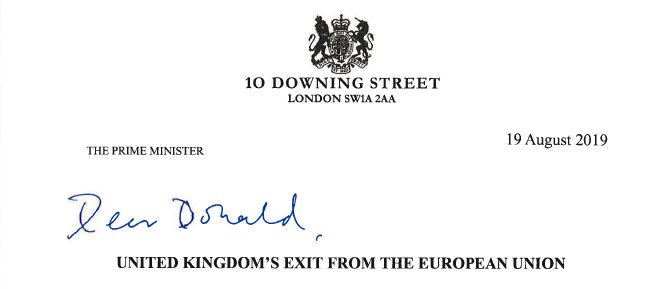 10 DOWNING STREET
LONDON SW1A 2AA
19 August 2019
THE PRIME MINISTER
Dear Donald,
UNITED KINGDOM'S EXIT FROM THE EUROPEAN UNION